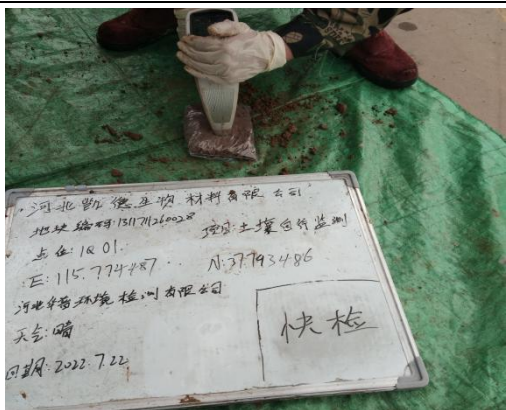 河北凯德生物材料有限公司
地块编码:1311711260028
点位:1Q01 项目:土壤自行监测
E:115.774487 N:37.793486
河北华 环境检测有限公司
天气:晴
日期:2022.7.22
快检